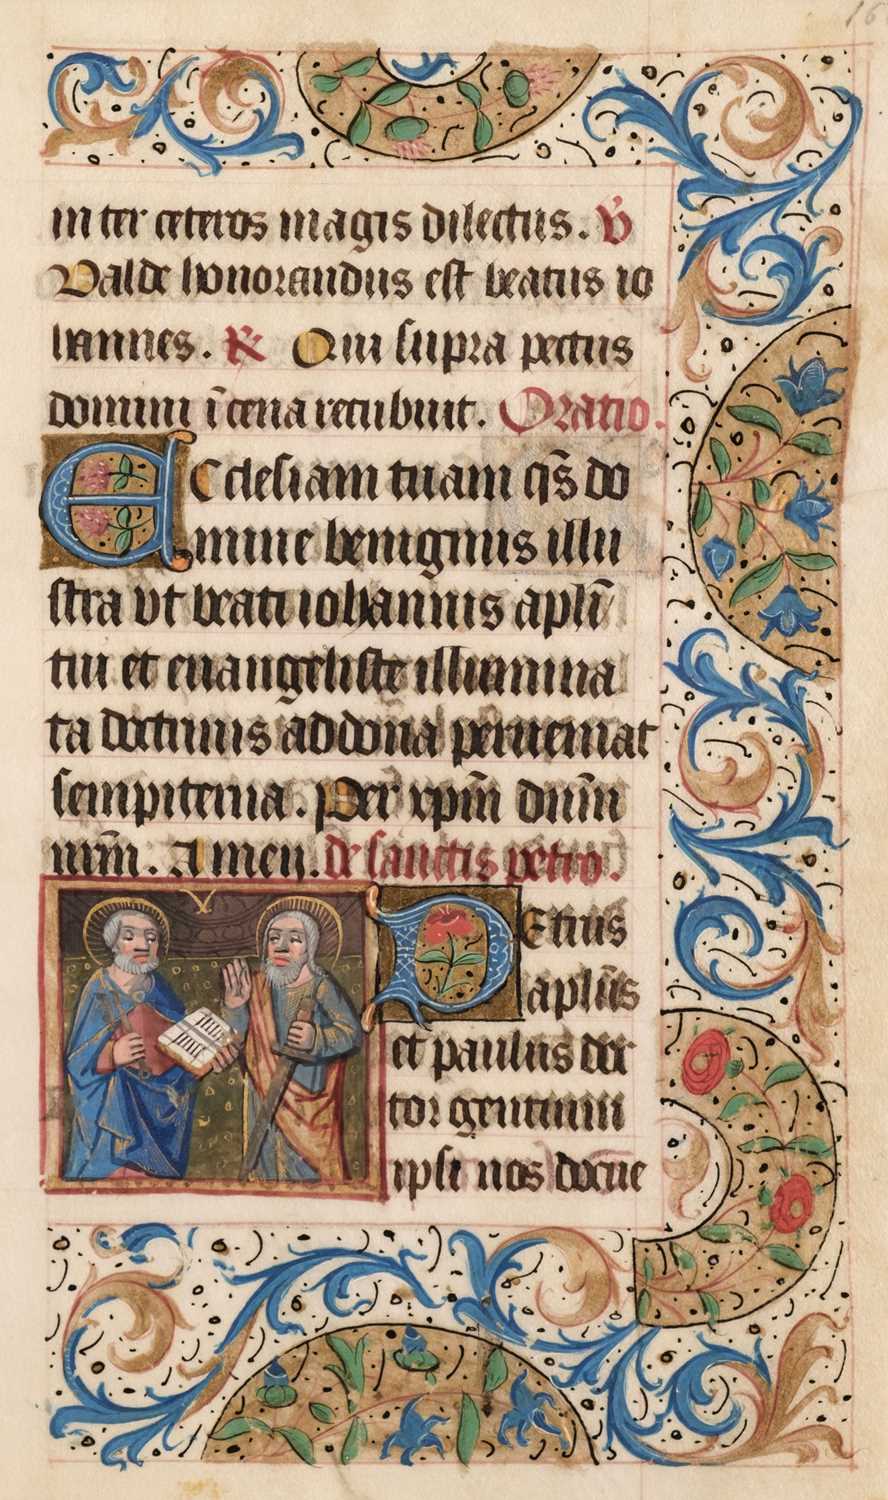 16
in ter ceteros magis dilectus. ℣
Valde honorandus est beatus io
hannes. ℟ Qui supra pectus
domini ī cena recubuit. Oratio.
ECclesiam tuam qs̄ do
mine benignus illu
stra vt beati iohannis apl̄i
tui et euangeliste illumina
ta doctrinis ad dona perueniat
sempiterna. Per xp̄m dn̄m
nr̄m. Amen. de sanctis petro.
PEtrus
apl̄us
et paulus doc
tor gentium
ipsi nos docue